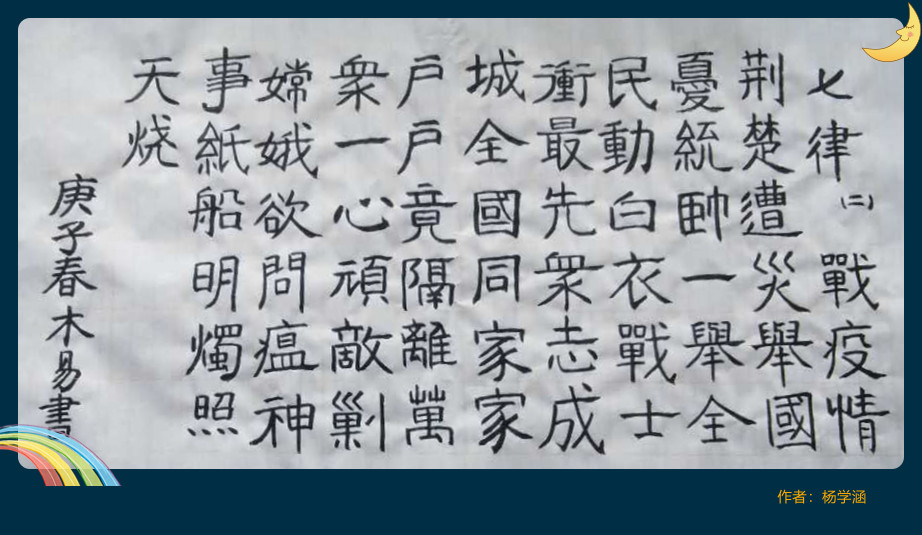 七律(二)戰疫情
荆楚遭災舉國
憂統帥一舉全
民動白衣戰士
衝最先衆志成
城全國同家家
戶戶竟隔離萬
衆一心頑敵剿
嫦娥欲問瘟神
事紙船明燭照
天烧
庚子春木易書
作者：杨学涵